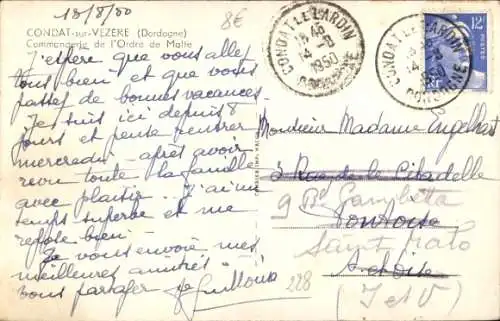 13/8/50
8€
CONDAT-sur-VEZERE (Dordogne)
Commanderie de l'Ordre de Malte
J'espère que vous allez
tous bien et que vous
passez de bonnes vacances.
Je suis ici depuis 8
jours et pense rentrer
mercredi après avoir
revu toute la famille
avec plaisir. J'ai un
temps superbe et me
repose bien.
Je vous envoie mes
meilleures amitiés
vous partager
CONDAT LE LARDIN
14-8
1950
DORDOGNE
CONDAT LE LARDIN
14-8
1950
DORDOGNE
12F
Monsieur Madame Engelhart
3 Rue de la Citadelle
9 Bd Gambetta
Pontoise
Saint Malo
S. et Oise
(I et V)
228